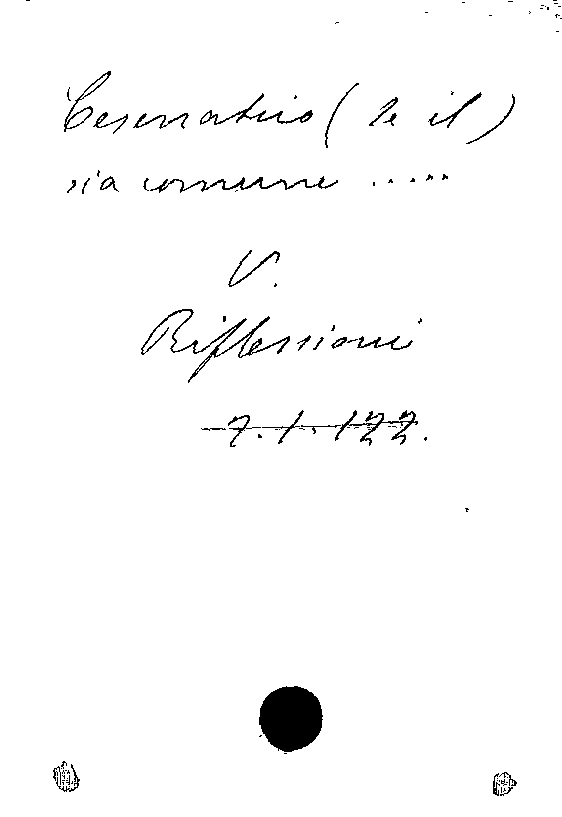 Cesenatico (se il)
sia comune .....
V.
Riflessioni
7. 1. 122.